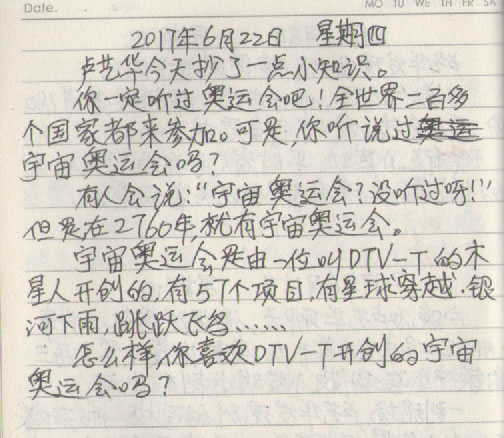 Date.
MO TU WE TH FR SA
2017年6月22日 星期四
卢艺华今天抄了一点小知识。
你一定听过奥运会吧！全世界二百多
个国家都来参加。可是，你听说过奥运
宇宙奥运会吗？
有人会说：“宇宙奥运会？没听过呀！”
但是在2760年，就有宇宙奥运会。
宇宙奥运会是由一位叫DTV-T的木
星人开创的，有57个项目，有星球穿越、银
河下雨，跳跃飞鸟……
怎么样，你喜欢DTV-T开创的宇宙
奥运会吗？